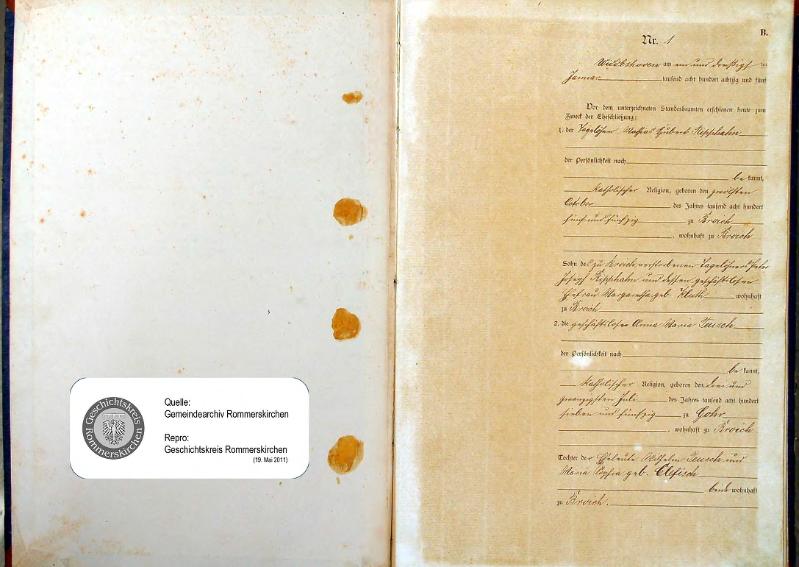 Geschichtskreis
Rommerskirchen
Quelle:
Gemeindearchiv Rommerskirchen
Repro:
Geschichtskreis Rommerskirchen
(19. Mai 2011)
B.
Nr. 1
am ein und dreißigsten
Januar tausend acht hundert achtzig und fünf
Vor dem unterzeichneten Standesbeamten erschienen heute zum
Zweck der Eheschließung:
1. der Tagelöhner Hubert
der Persönlichkeit nach
be kannt,
katholischer Religion, geboren den zwölften
October des Jahres tausend acht hundert
fünf und fünfzig zu Broich
, wohnhaft zu Broich
Sohn des zu Broich verstorbenen Tagelöhners Peter
Joseph und dessen geschäftslosen
Ehefrau Margaretha geb. wohnhaft
zu Broich
2. die geschäftslose Anna Maria Tusch
der Persönlichkeit nach
be kannt,
katholischer Religion, geboren den drei und
zwanzigsten Juli des Jahres tausend acht hundert
sieben und fünfzig zu Gohr
, wohnhaft zu Broich
Tochter der Eheleute Wilhelm Tusch und
Maria Sophia geb. Clefisch
beide wohnhaft
zu Broich.